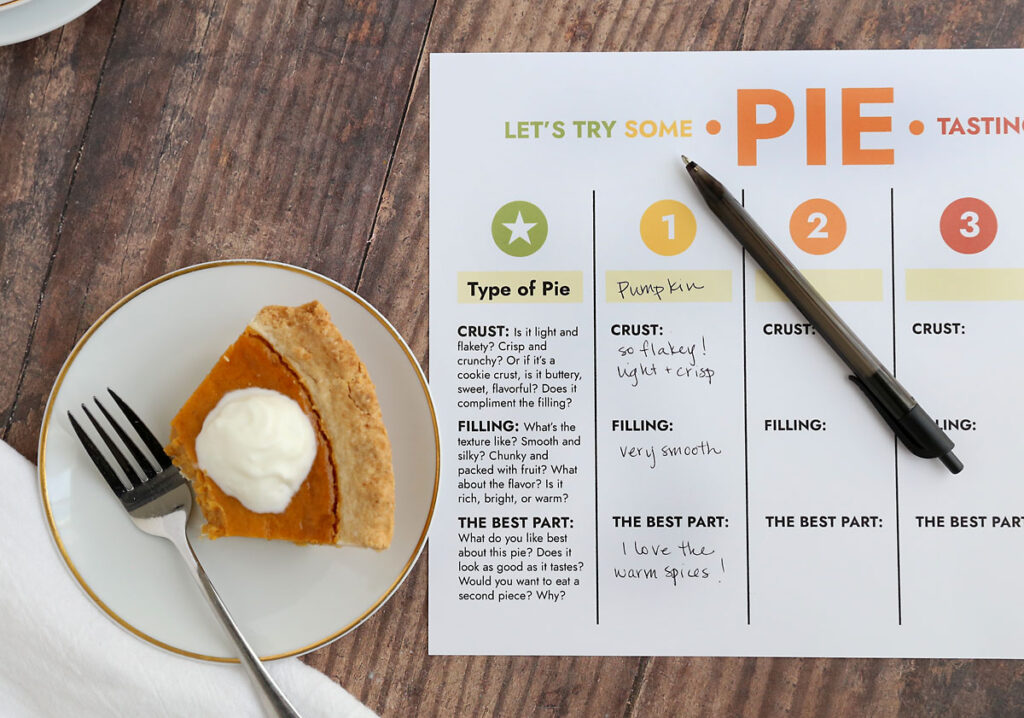 LET'S TRY SOME • PIE • TASTING
1 2 3
Type of Pie
CRUST: Is it light and
flakety? Crisp and
crunchy? Or if it's a
cookie crust, is it buttery,
sweet, flavorful? Does it
compliment the filling?
FILLING: What's the
texture like? Smooth and
silky? Chunky and
packed with fruit? What
about the flavor? Is it
rich, bright, or warm?
THE BEST PART:
What do you like best
about this pie? Does it
look as good as it tastes?
Would you want to eat a
second piece? Why?
Pumpkin
CRUST:
so flakey!
light + crisp
FILLING:
very smooth
THE BEST PART:
I love the
warm spices!
CRUST:
FILLING:
THE BEST PART:
CRUST:
NG:
THE BEST PART: